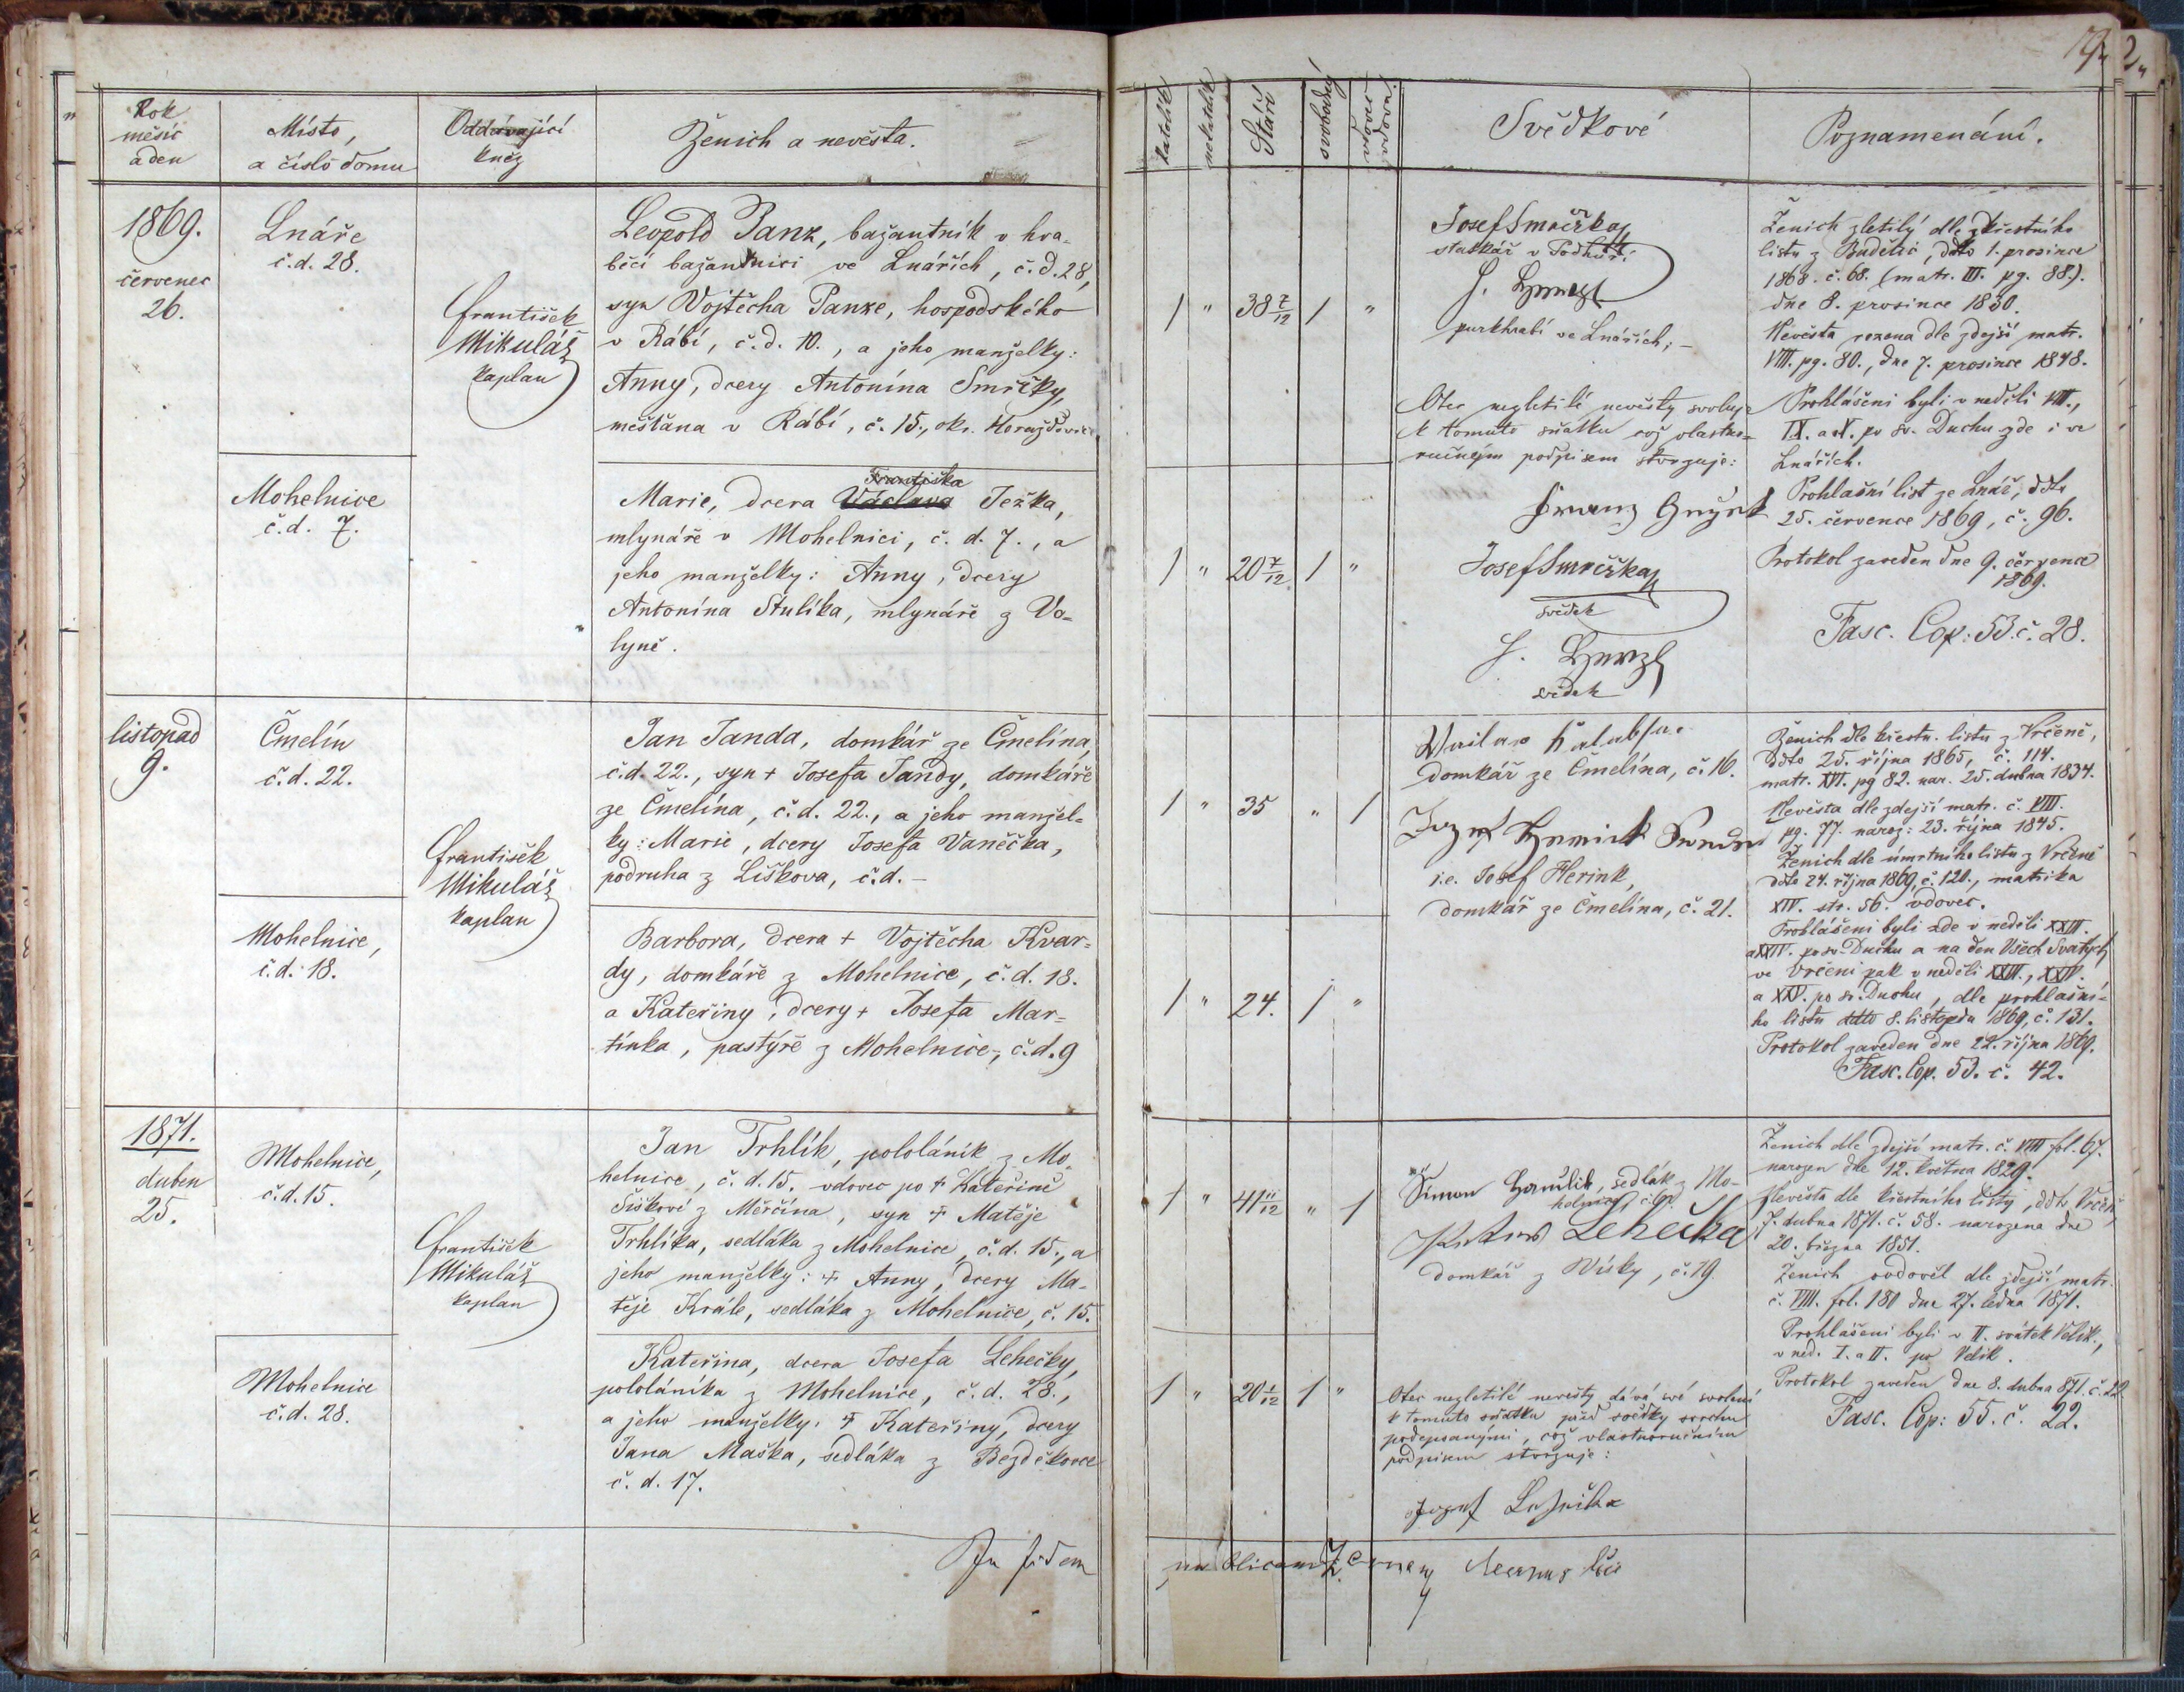 19.
2.
Rok
měsíc
a den
Místo,
a číslo domu
Oddávající
kněz
Ženich a nevěsta.
katolík
nekatolík
Stáří
svobodný
vdovec
vdova
Svědkové
Poznamenání.
1869.
červenec
26.
Lnáře
č.d. 28.
František
Mikuláš
kaplan
Leopold Panz, bažantník v hra-
běcí bažantnici ve Lnářích, č.d.28,
syn Vojtěcha Panze, hospodského
v Rábí, č.d. 10., a jeho manželky:
Anny, dcery Antonína Smrčky,
měšťana v Rábí, č. 15., okr. Horažďovice
Mohelnice
č.d. 7.
Františka
Marie, dcera Václava Ježka,
mlynáře v Mohelnici, č. d. 7., a
jeho manželky: Anny, dcery
Antonína Stulíka, mlynáře z Vo-
lyně.
1 " 38 7/12 1 "
1 " 20 7/12 1 "
Josef Smrčka
statkář v Podhůří
purkhrabí ve Lnářích; –
Otec nezletilé nevěsty svoluje
k tomuto sňatku což vlastno-
ručným podpisem stvrzuje:
Franz
Josef Smrčka
svědek
svědek
Ženich zletilý dle křestního
listu z Budětic, ddto 1. prosince
1868. č. 68. (matr. III. pg. 88.).
dne 8. prosince 1830.
Nevěsta rozena dle zdejší matr.
VIII. pg. 80., dne 7. prosince 1848.
Prohlášeni byli v neděli VIII.,
IX. a X. po sv. Duchu zde i ve
Lnářích.
Prohlašní list ze Lnář, ddto
25. července 1869, č. 96.
Protokol zaveden dne 9. července
1869.
Fasc. Cop: 53. č. 28.
listopad
9.
Čmelín
č.d. 22.
František
Mikuláš
kaplan
Jan Janda, domkář ze Čmelína,
č.d. 22., syn + Josefa Jandy, domkáře
ze Čmelína, č.d. 22., a jeho manžel-
ky: Marie, dcery Josefa Vaněčka,
podruha z Liškova, č.d. –
Mohelnice,
č.d. 18.
Barbora, dcera + Vojtěcha Kvar-
dy, domkáře z Mohelnice, č.d. 18.
a Kateřiny, dcery + Josefa Mar-
tínka, pastýře z Mohelnice, č.d. 9
1 " 35 " 1
1 " 24. 1 "
domkář ze Čmelína, č. 16.
i.e. Josef Herink,
domkář ze Čmelína, č. 21.
Ženich dle křestn. listu z Vrčeně,
ddto 25. října 1865, č. 114.
matr. XVI. pg 82. nar. 25. dubna 1834.
Nevěsta dle zdejší matr. č. VIII.
pg. 77. naroz: 23. října 1845.
Ženich dle úmrtního listu z Vrčeně
ddto 24. října 1869, č. 120., matrika
XIV. str. 56. vdovec.
Prohlášeni byli zde v neděli XXIII.
a XXIV. po sv. Duchu a na den Všech Svatých
ve Vrčeni pak v neděli XXIII., XXIV.
a XXV. po sv. Duchu, dle prohlašní-
ho listu ddto 8. listopadu 1869, č. 131.
Protokol zaveden dne 22. října 1869.
Fasc. Cop. 53. č. 42.
1871.
duben
25.
Mohelnice,
č.d. 15.
František
Mikuláš
kaplan
Jan Trhlík, pololáník z Mo-
helnice, č. d. 15. vdovec po + Kateřině
Šiškové z Měrčína, syn + Matěje
Trhlíka, sedláka z Mohelnice, č.d. 15., a
jeho manželky: + Anny, dcery Ma-
těje Krále, sedláka z Mohelnice, č. 15.
Mohelnice
č.d. 28.
Kateřina, dcera Josefa Lehečky,
pololáníka z Mohelnice, č.d. 28.,
a jeho manželky: + Kateřiny, dcery
Jana Maška, sedláka z Bezděkovce
č. d. 17.
1 " 41 11/12 " 1
1 " 20 1/12 1 "
Šimon sedlák z Mo-
Lehečka
domkář z Vísky, č. 19.
Otec nezletilé nevěsty dává své svolení
k tomuto sňatku před svědky svrchu
podepsanými, což vlastnoručním
podpisem stvrzuje:
Ženich dle zdejší matr. č. VIII fol. 67.
narozen dne 12. května 1829.
Nevěsta dle křestního listu, ddto Vrčeň,
7. dubna 1871. č. 58. narozena dne
20. března 1851.
Ženich ovdověl dle zdejší matr.
č. VIII. fol. 180 dne 27. ledna 1871.
Prohlášeni byli v II. svátek Velik.,
v ned. I. a II. po Velik.
Protokol zaveden dne 8. dubna 871. č. 22.
Fasc. Cop: 55. č. 22.